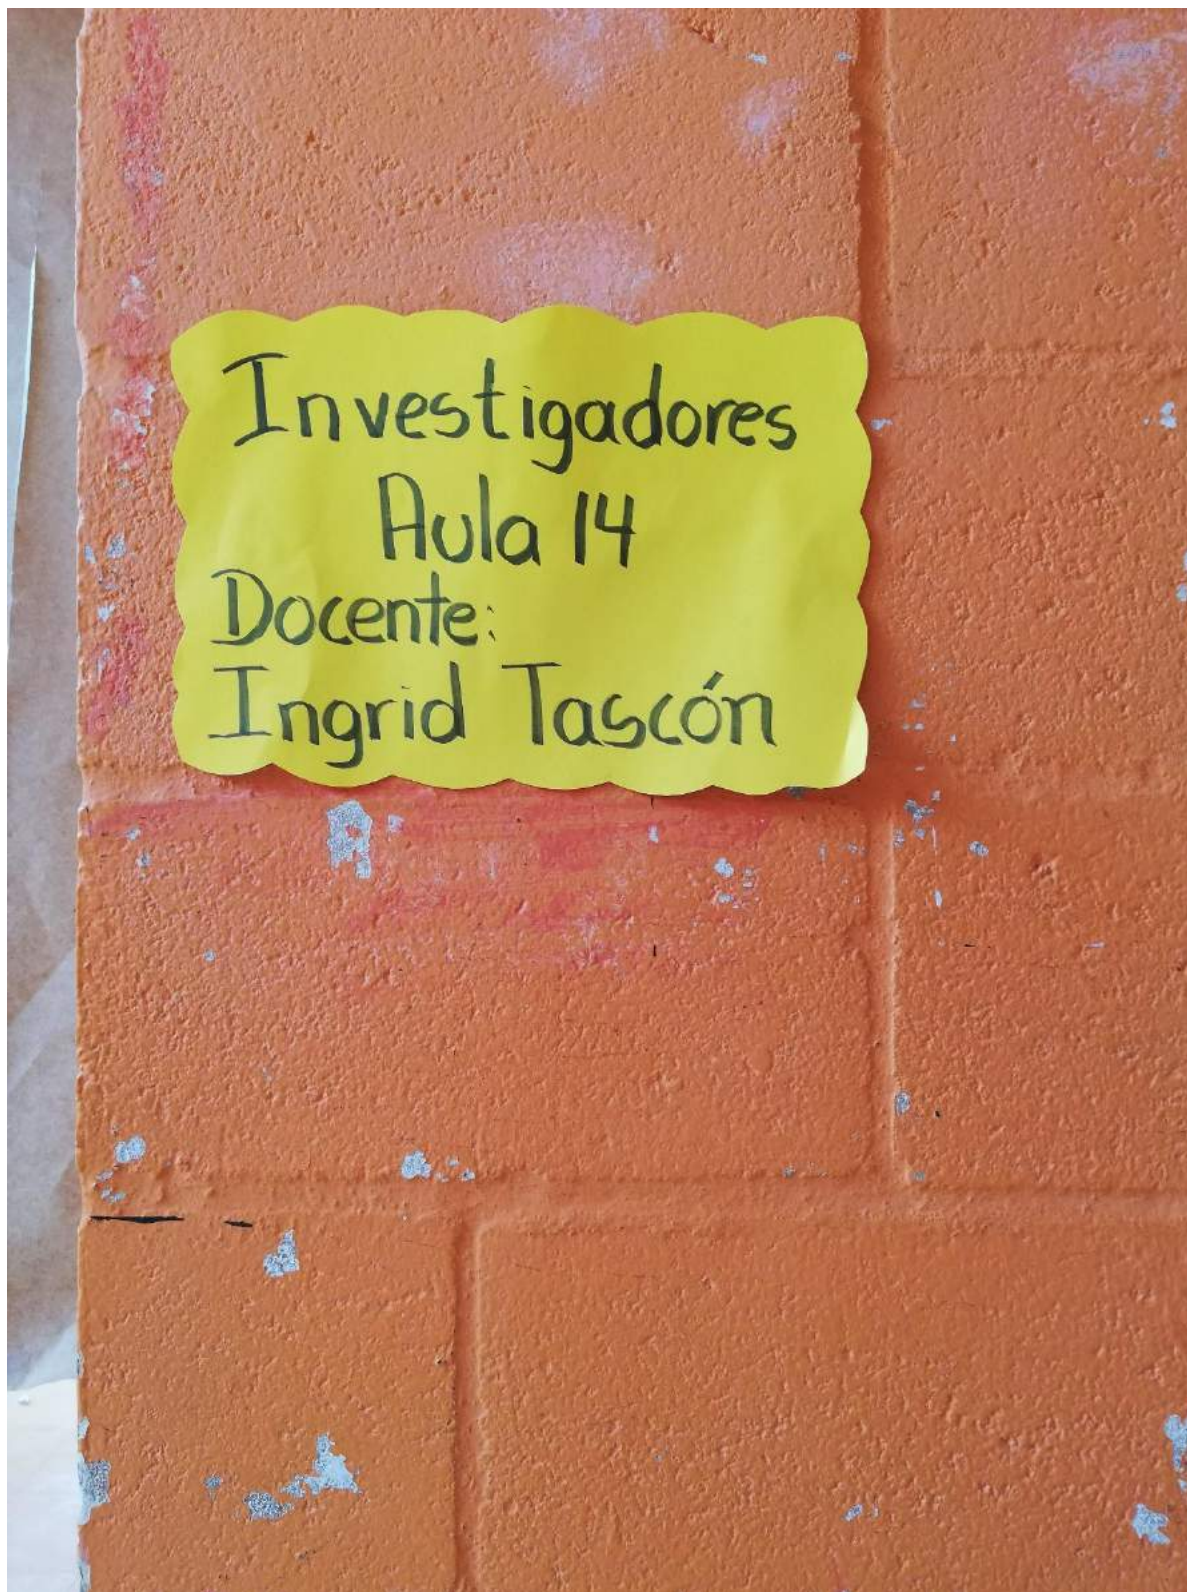 Investigadores
Aula 14
Docente:
Ingrid Tascón